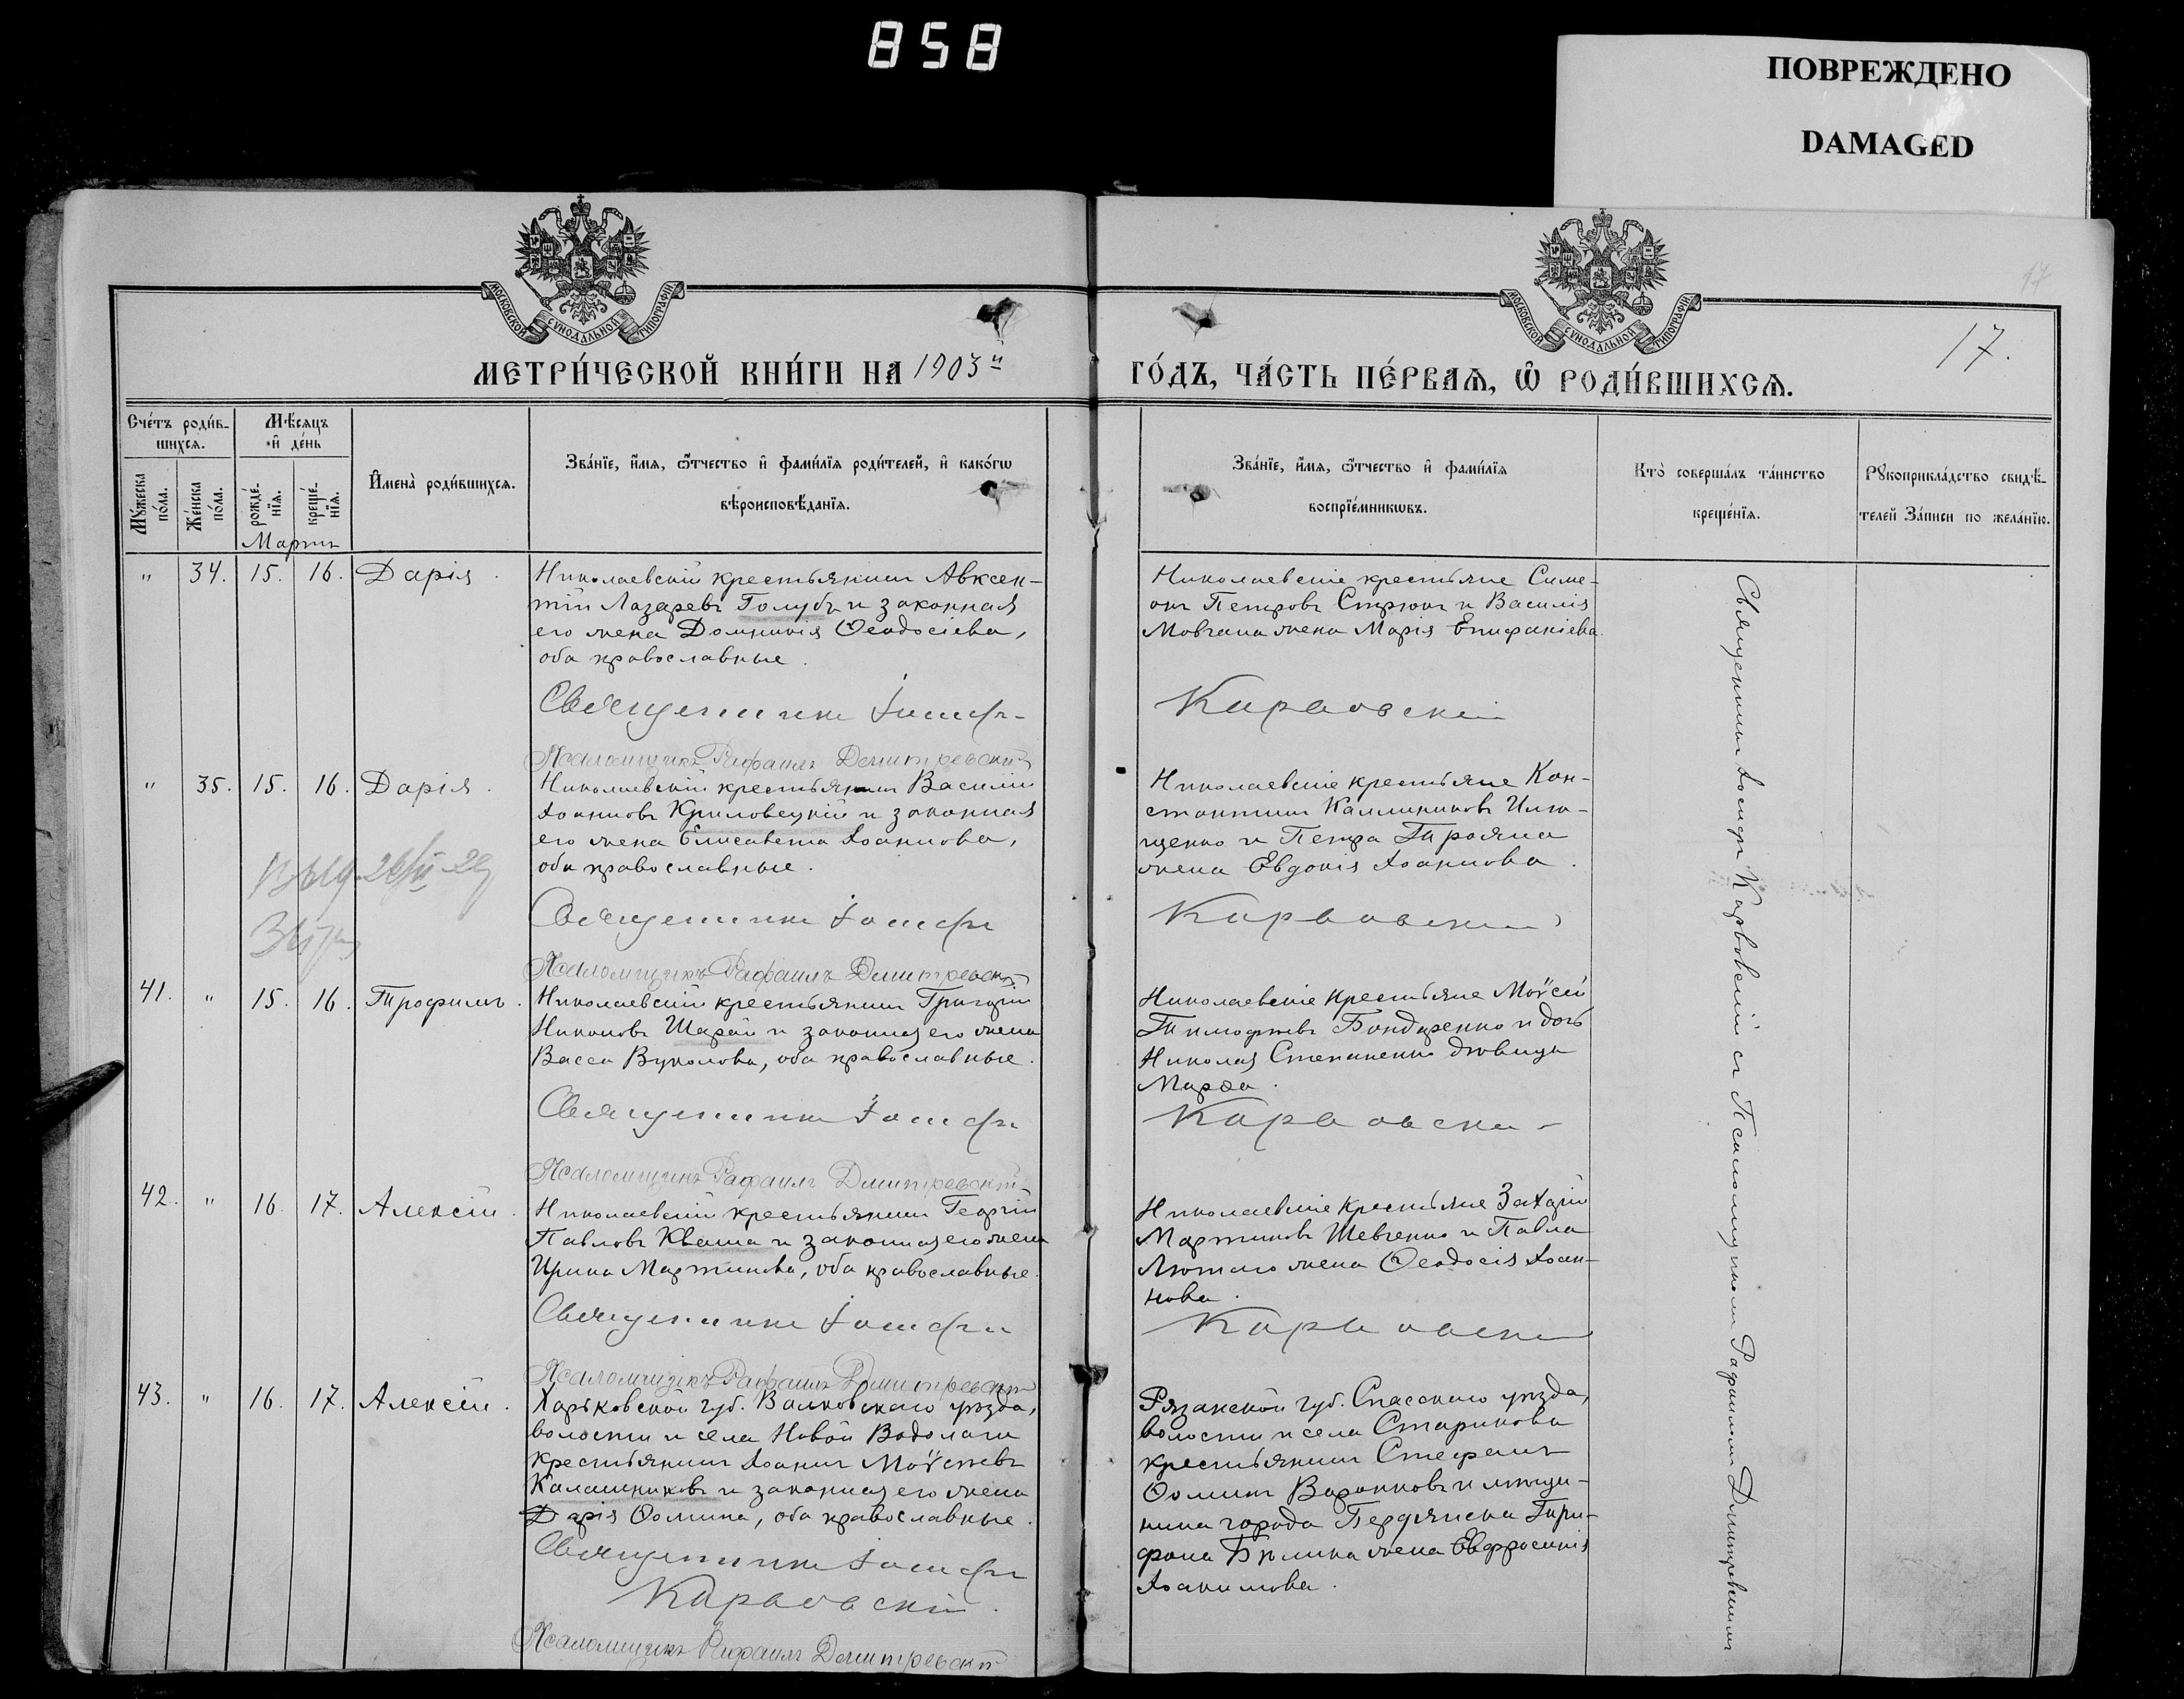 858
ПОВРЕЖДЕНО
DAMAGED
МОСКОВСКОЙ СѴНОДАЛЬНОЙ ТИПОГРАФІИ
МОСКОВСКОЙ СѴНОДАЛЬНОЙ ТИПОГРАФІИ
17
17.
МЕТРИ́ЧЕСКОЙ КНИ́ГИ НА 1903й
ГО́ДЪ, ЧА́СТЬ ПЕ́РВАѦ, Ѡ҆ РОДИ́ВШИХСѦ.
Сче́тъ роди́в-
шихсѧ.
Мѣ́сѧцъ
и҆ де́нь
Мꙋ́жеска по́ла.
Же́нска по́ла.
рожде́-
нїѧ.
креще́-
нїѧ.
Мартъ
И҆мена̀ роди́вшихсѧ.
Зва́нїе, и҆́мѧ, ѻ҆́тчество и҆ фами́лїѧ роди́телей, и҆ како́гѡ
вѣроисповѣ́данїѧ.
Зва́нїе, и҆́мѧ, ѻ҆́тчество и҆ фами́лїѧ
воспрїе́мникѡвъ.
Кто̀ соверша́лъ та́инство
креще́нїѧ.
Рꙋкоприкла́дство свидѣ́-
телей за́писи по жела́нїю.
" 34. 15. 16. Дарія.
Николаевскій крестьянинъ Авксен-
тій Лазаревъ Голубъ и законная
его жена Домникія Ѳеодосіева,
оба православные.
Священникъ Іосифъ
Псаломщикъ Рафаилъ Димитревскій
Николаевскіе крестьяне Симе-
онъ Петровъ Стрюкъ и Василія
Мовчана жена Марія Епифаніева.
Карвовскій
" 35. 15. 16. Дарія.
Николаевскій крестьянинъ Василій
Іоанновъ Криловецкій и законная
его жена Елисавета Іоаннова,
оба православные.
Священникъ Іосифъ
Псаломщикъ Рафаилъ Димитревскій
Николаевскіе крестьяне Кон-
стантинъ Каллиниковъ Илю-
щенко и Петра Трояна
жена Евдокія Іоаннова.
Карвовскій
41. " 15. 16. Трофимъ.
Николаевскій крестьянинъ Григорій
Никоновъ Шарай и законная его жена
Васса Вуколова, оба православные.
Священникъ Іосифъ
Псаломщикъ Рафаилъ Димитревскій
Николаевскіе крестьяне Моѵсей
Тимофѣевъ Бондаренко и дочь
Николая Степаненко дѣвица
Марѳа.
Карвовскій
42. " 16. 17. Алексій.
Николаевскій крестьянинъ Георгій
Павловъ Кваша и законная его жена
Ирина Мартинова, оба православные.
Священникъ Іосифъ
Псаломщикъ Рафаилъ Димитревскій
Николаевскіе крестьяне Захарій
Мартиновъ Шевченко и Павла
Лютаго жена Ѳеодосія Іоан-
нова.
Карвовскій
43. " 16. 17. Алексій.
Харьковской губ. Валковскаго уѣзда,
волости и села Новой Водолаги
крестьянинъ Іоаннъ Моѵсеевъ
Калашниковъ и законная его жена
Дарія Ѳомина, оба православные.
Священникъ Іосифъ
Карвовскій.
Псаломщикъ Рафаилъ Димитревскій
Рязанской губ. Спасскаго уѣзда,
волости и села Старикова
крестьянинъ Стефанъ
Ѳоминъ Воронковъ и мѣща-
нина города Бердянска Три-
фона Бѣлика жена Евфросинія
Іоакимова.
Священникъ Іосифъ Карвовскій съ Псаломщикомъ Рафаиломъ Димитревскимъ